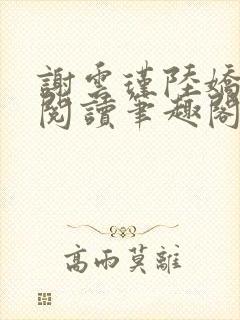 謝雲瑾陸嬌
閱讀筆趣閣
高雨莫離